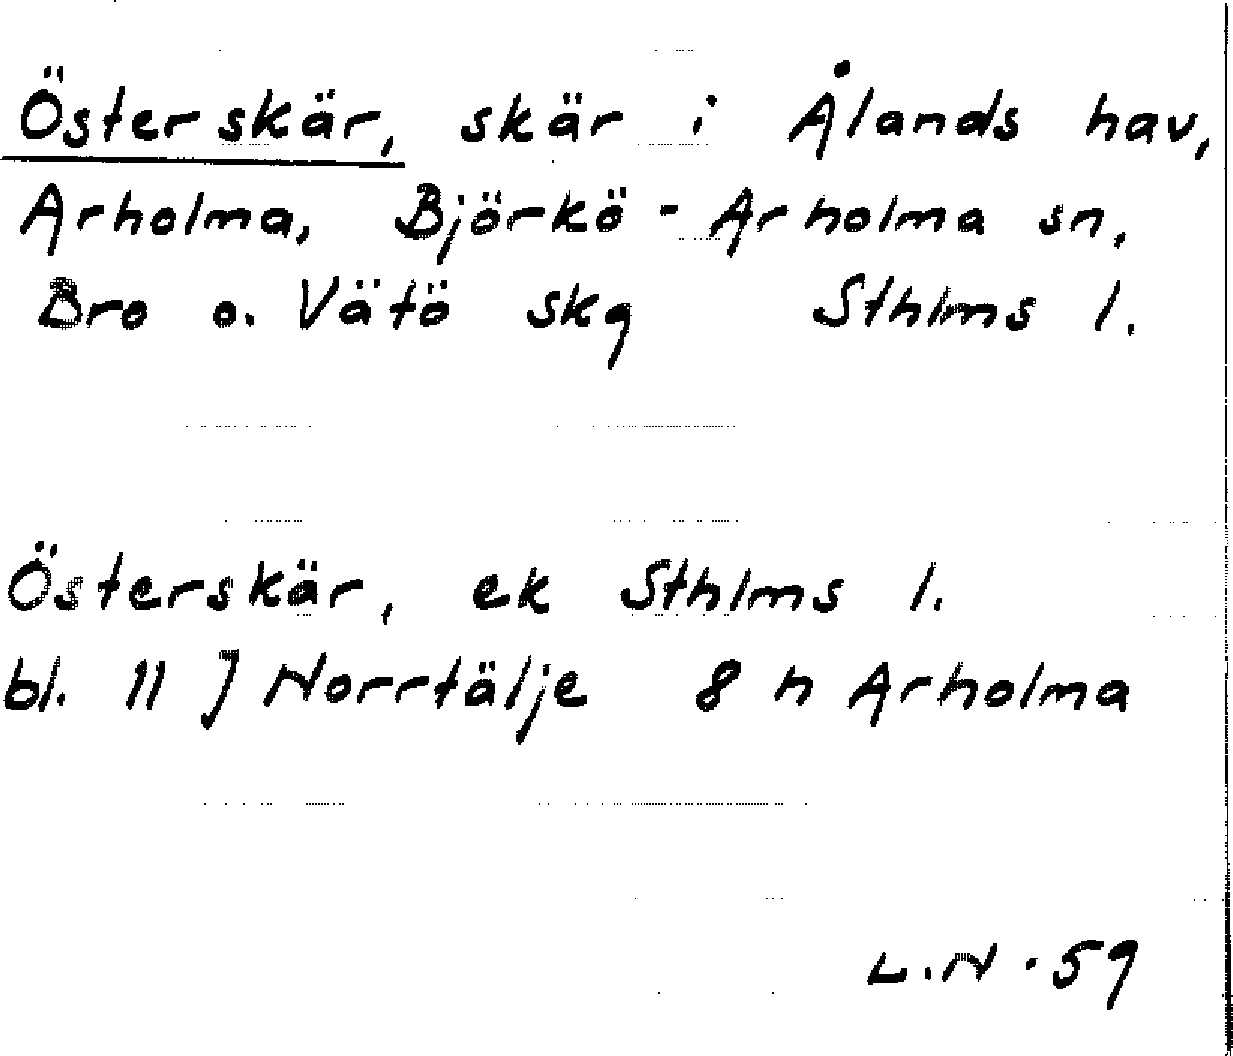 Österskär, skär i Ålands hav,
Arholma, Björkö-Arholma sn,
Bro o. Vätö skg Sthlms l.
Österskär, ek Sthlms l.
bl. 11 J Norrtälje 8 h Arholma
L.N.59